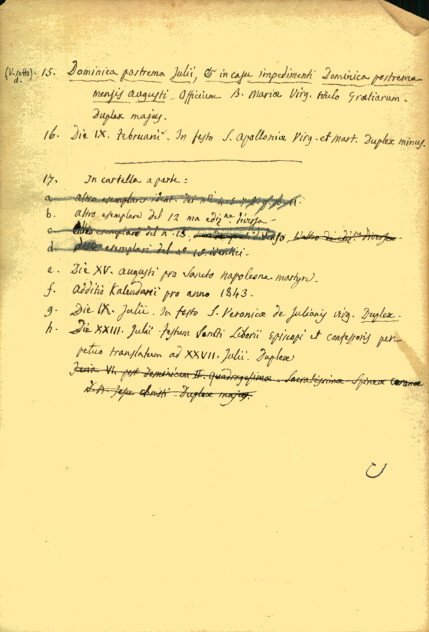 (V. sotto) 15. Dominica postrema Julii, & in casu impedimenti Dominica postrema
d.
mensis Augusti. Officium B. Mariæ Virg. titulo Gratiarum.
Duplex majus.
16. Die IX. Februarii. In festo S. Apolloniæ Virg. et Mart. Duplex minus.
17. In cartella a parte:
a. altro esemplare ident. dei nⁱ
b. altro esemplare del 12 ma ediz.ⁿᵉ diversa.
c. altro esemplare del n. 13,
d. esemplari del nº 15 identici.
e. Die XV. Augusti pro Sancto Napoleone martyre.
f. Additio Kalendarii pro anno 1843.
g. Die IX. Julii. In festo S. Veronicæ de Julianis Virg. Duplex.
h. Die XXIII. Julii Festum Sancti Liborii Episcopi et confessoris per-
petuo translatum ad XXVII. Julii. Duplex
Feria VI. post Dominicam II. Quadragesimæ. Sacratissimæ Spineæ coronæ
D. N. Jesu Christi. Duplex majus.